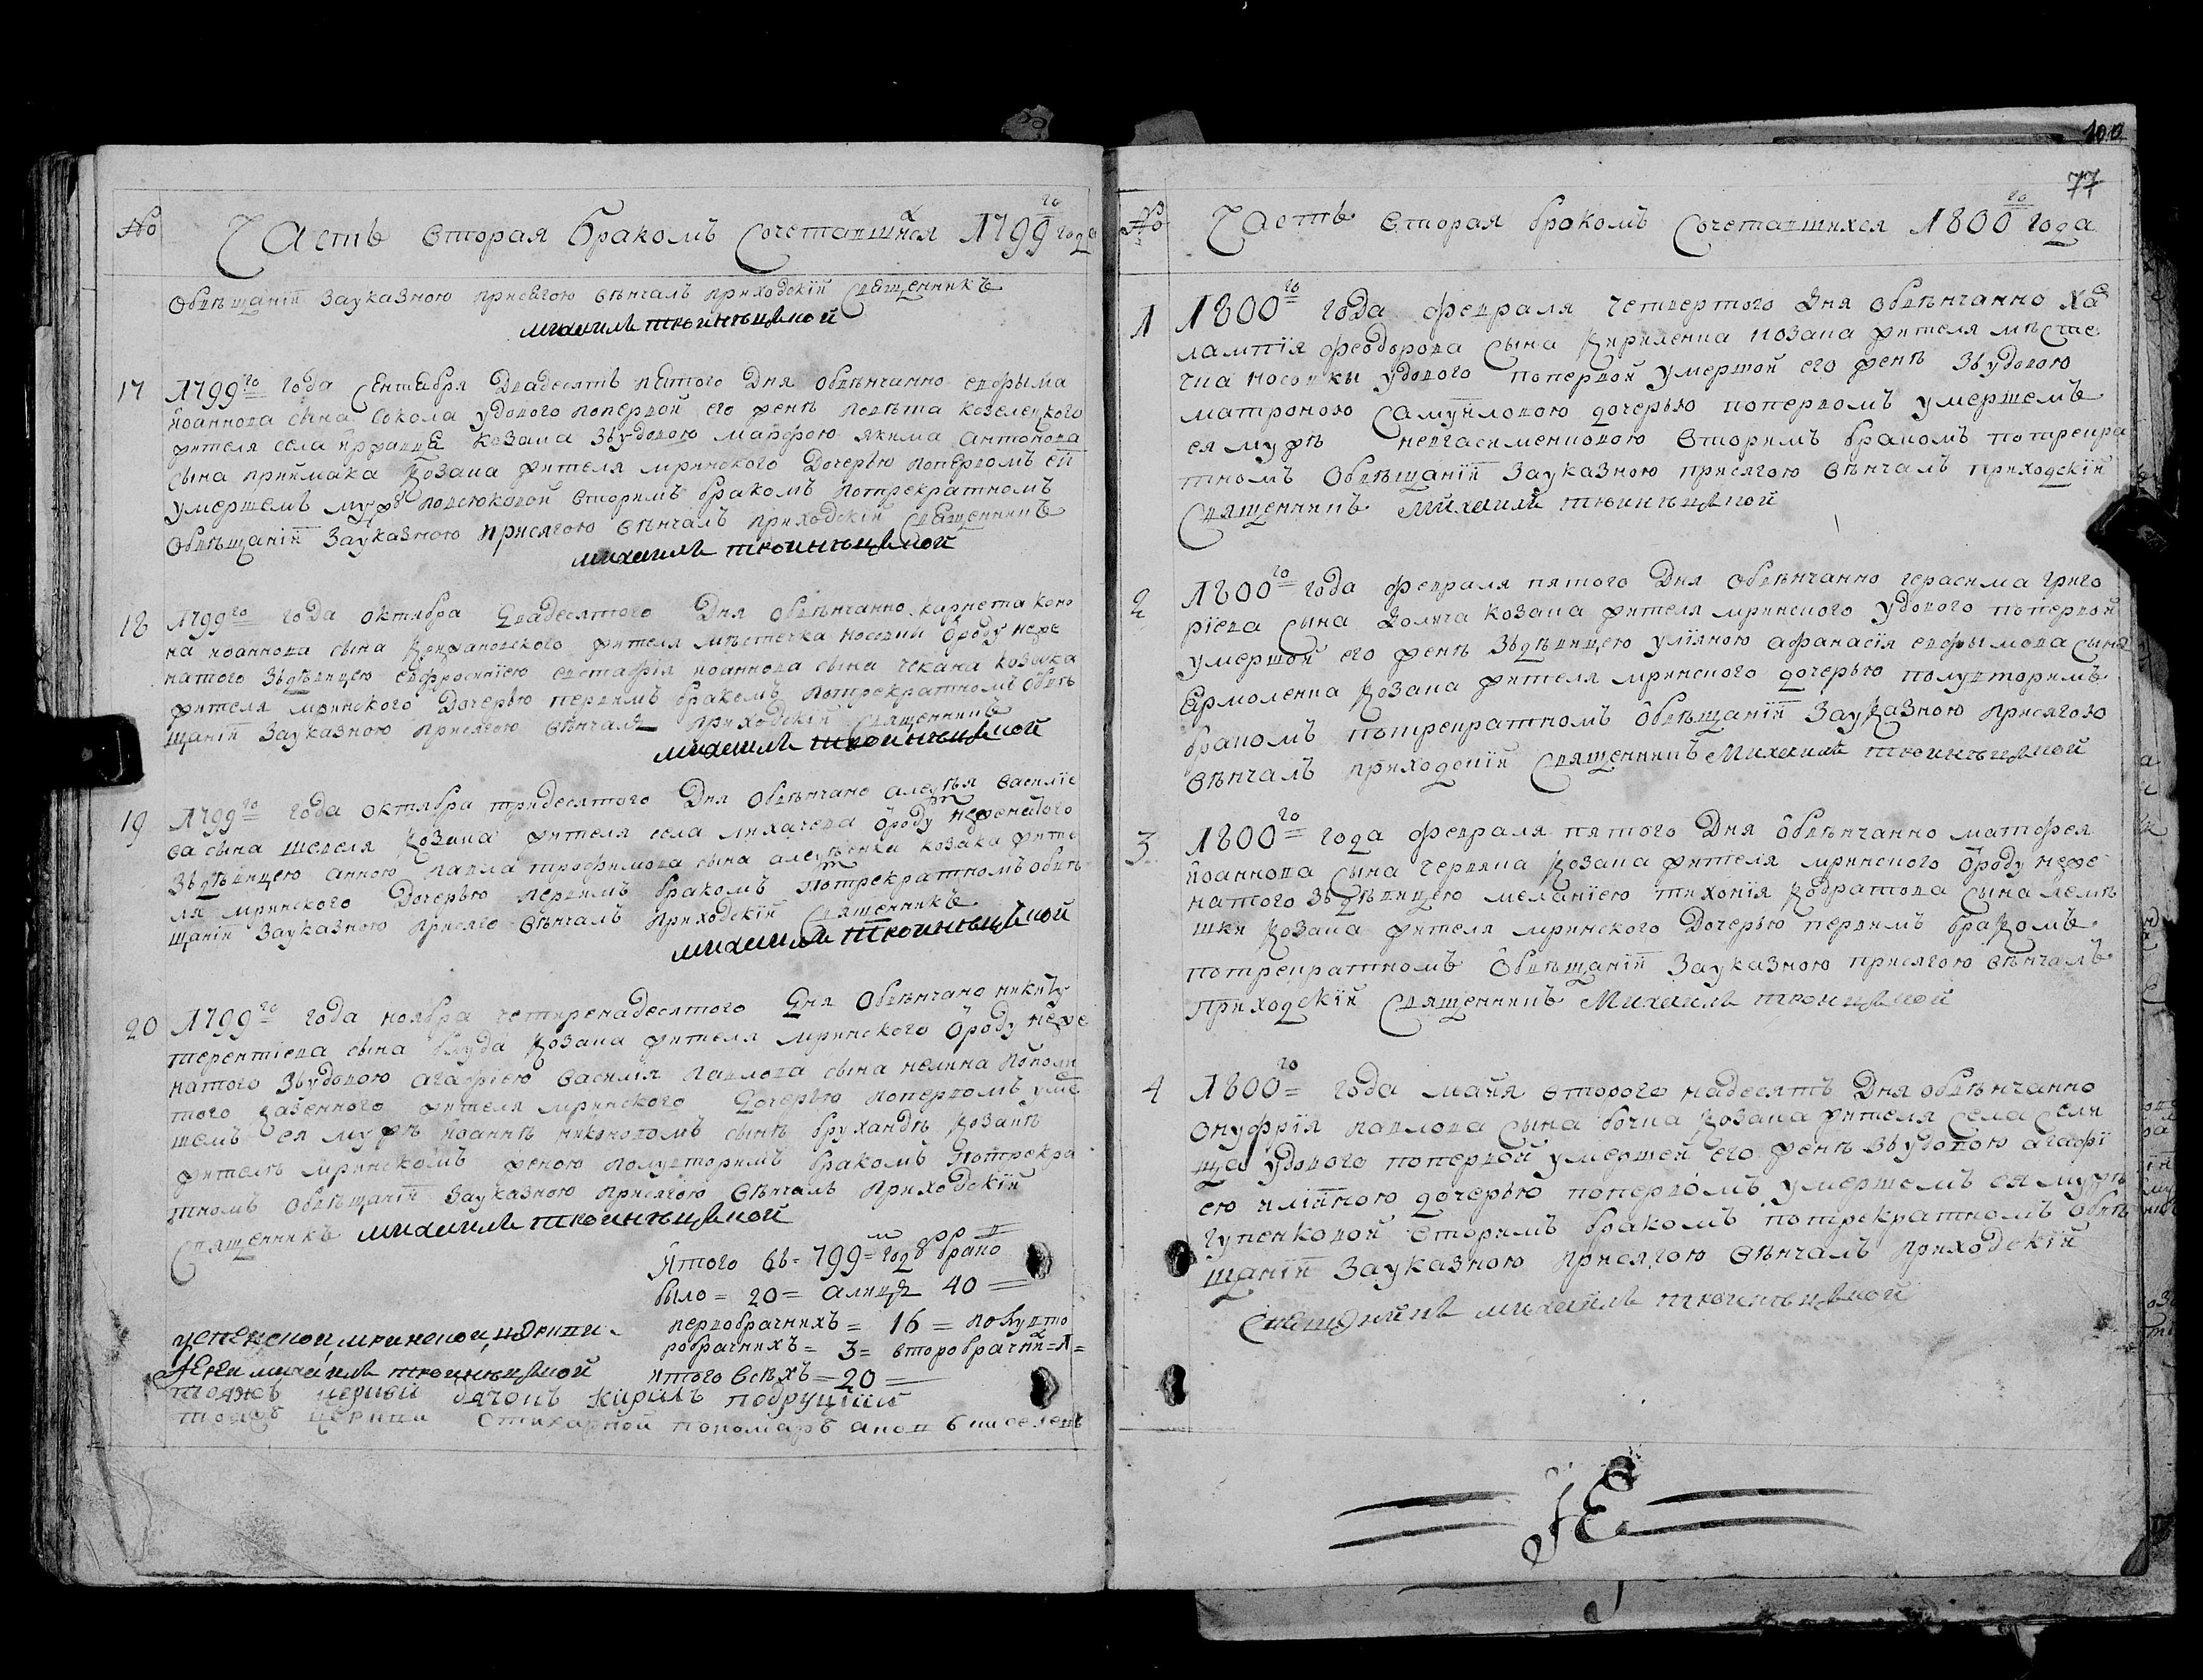 № Часть вторая Бракомъ Сочетавшихся 1799го года
Обвѣщаній Зауказною присягою вѣнчалъ приходскій Священникъ
михаилъ
17 1799го года Сентебря двадесятъ пятого Дня обвѣнчанно евфыма
иоаннова сына сокола удового попервой его женѣ повѣта козелецкого
жителя села козака Звудовою марфою якима антонова
сына приймака козака жителя мринского Дочерью попервомъ ей
умершемъ мужѣ вторимъ бракомъ потрекратномъ
Обвѣщаній Зауказною присягою вѣнчалъ приходскій Священникъ
михаилъ
18 1799го года октября двадесятого Дня обвѣнчанно корнета коно
на иоаннова сына жителя мѣстечка носовки ѿроду неже
натого Здѣвицею евфросиніею евстафія иоаннова сына чекана козака
жителя мринского Дочерью первимъ бракомъ потрекратномъ обвѣ
щаній Зауказною присягою вѣнчалъ приходскій Священникъ
михаилъ
19 1799го года октября тридесятого Дня обвѣнчано алеѯѣя василіе
ва сына шевеля козака жителя села лихачева ѿроду неженатого
Здѣвицею анною павла трофимова сына алеѯѣенка козака жите
ля мринского Дочерью первимъ бракомъ потрекратномъ обвѣ
щаній Зауказною присяго вѣнчалъ приходскій Священникъ
михаилъ
20 1799го года ноября четиренадесятого Дня Обвѣнчано никиту
терентіева сына козака жителя мринского ѿроду неже
натого Звудовою агафіею василія павлова сына
того казенного жителя мринского Дочерью попервомъ уме
шемъ ея мужѣ иоаннѣ никоновомъ сынѣ брухандѣ козакѣ
жителѣ мринскомъ женою полувторимъ бракомъ потрекра
тномъ обвѣщаній Зауказною присягою вѣнчалъ приходскій
Священникъ михаилъ
Итого въ 799м годѣ бракѡ
было = 20 = а лицъ 40 =
первобрачнихъ = 16 = полувто
робрачнихъ = 3 = второбрачнихъ = 1 =
Итого всѣхъ = 20 =
успенской мринской церкви
Іерей михаилъ
тояжъ церкви дячокъ кирилъ
тояжъ церкви стихарной пономарь
77
№ Часть вторая бракомъ Сочетавшихся 1800го года
1 1800го года февраля четвертого Дня обвѣнчанно Хар
лампія феодорова Сына козака жителя мѣсте
чка носовки удового попервой умершой его женѣ Звудовою
матроною Самуиловою дочерью попервомъ умершемъ
ея мужѣ вторимъ бракомъ потрекра
тномъ Обвѣщаній Зауказною присягою вѣнчалъ приходскій
Священникъ Михаилъ
2 1800го года февраля пятого Дня обвѣнчанно герасима григо
ріева сына козака жителя мринского удового попервой
умершой его женѣ Здѣвицею уліяною афанасія евфымова сына
Ермоленка козака жителя мринского дочерью полувторимъ
бракомъ потрекратномъ Обвѣщаній Зауказною присягою
вѣнчалъ приходскій Священникъ Михаилъ
3 1800го года февраля пятого Дня обвѣнчанно матфея
иоаннова сына червяка козака жителя мринского ѿроду неже
натого Здѣвицею меланіею тихонія кодратова сына леме
шки козака жителя мринского Дочерью первимъ бракомъ
потрекратномъ Обвѣщаній Зауказною присягою вѣнчалъ
приходскій Священникъ Михаилъ
4 1800го года майя второго надесятъ Дня обвѣнчанно
онуфрія павлова сына бочка козака жителя Села Сели
ща удового попервой умершей его женѣ Звудовою агафі
ею илійною дочерью попервомъ умершемъ ея мужѣ
вторимъ бракомъ потрекратномъ обвѣ
щаній Зауказною присягою вѣнчалъ приходскій
Священникъ михаилъ